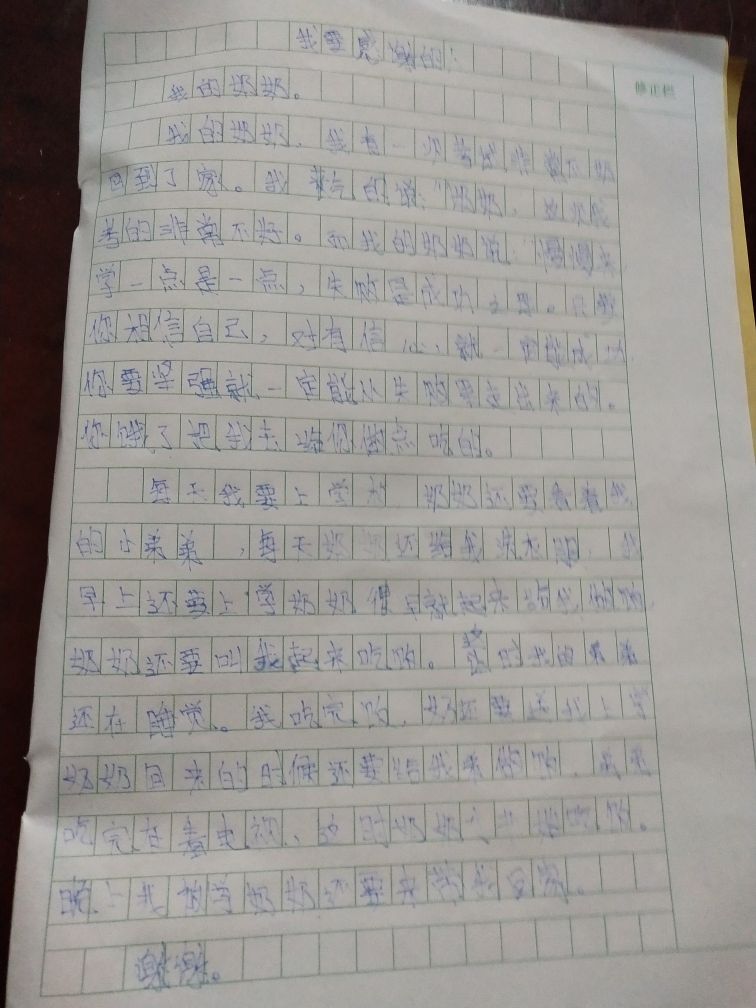 我要感谢的：
修正栏
我的奶奶。
我的奶奶，我有一次考试非常不好
回到了家。我 的说：“奶奶，这次我
考的非常不好。而我的奶奶说：慢慢来
学一点是一点，失败是成功之母。只要
你相信自己，对有信心，就一定能成功
你要坚强就一定能从失败里走出来的。
你饿了把我去给你做点吃的。
每天我要上学 奶奶还要看着我
的小弟弟，每天奶奶还给我洗衣服，我
早上还要上学奶奶很早就起来给我做饭
奶奶还要叫我起来吃饭。 时我的弟弟
还在睡觉。我吃完饭，奶还要送我上学
奶奶回来的时候还要给我弟做饭，弟弟
吃完在看电视、这时奶奶 吃饭。
晚上我放学奶奶还要来接我回家。
谢谢。